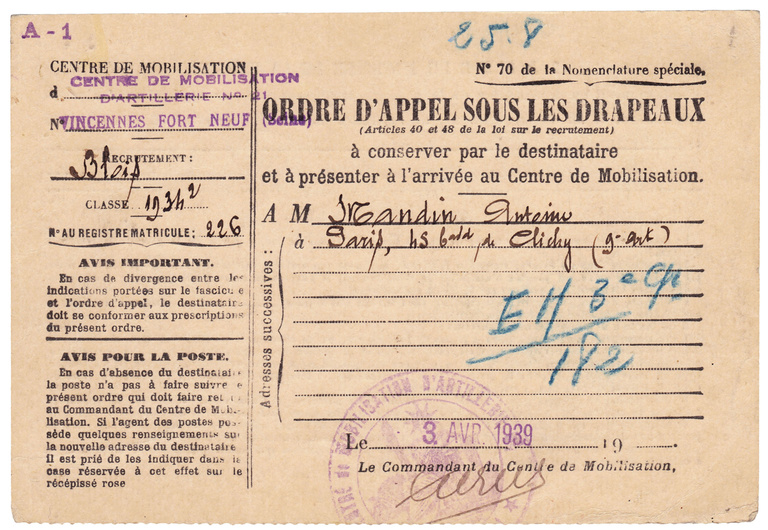 A - 1
25.8
CENTRE DE MOBILISATION
CENTRE DE MOBILISATION
d
D'ARTILLERIE No 21
N° VINCENNES FORT NEUF (Seine)
RECRUTEMENT :
Blois
CLASSE 1934 2
N° AU REGISTRE MATRICULE : 226
AVIS IMPORTANT.
En cas de divergence entre les
indications portées sur le fascicule
et l'ordre d'appel, le destinataire
doit se conformer aux prescriptions
du présent ordre.
AVIS POUR LA POSTE.
En cas d'absence du destinatai
la poste n'a pas à faire suivre
présent ordre qui doit faire ret
au Commandant du Centre de Mob
lisation. Si l'agent des postes pos-
sède quelques renseignements su
la nouvelle adresse du destinataire
il est prié de les indiquer dans
case réservée à cet effet sur le
récépissé rose
N° 70 de la Nomenclature spéciale.
ORDRE D'APPEL SOUS LES DRAPEAUX
(Articles 40 et 48 de la loi sur le recrutement)
à conserver par le destinataire
et à présenter à l'arrivée au Centre de Mobilisation.
A M Mandin Antoine
à Paris, 45 bard de Clichy (9e Art)
Adresses successives :
E H 3e Cie
182
CENTRE DE MOBILISATION D'ARTILLERIE
Le 3 AVR. 1939 19
Le Commandant du Centre de Mobilisation,